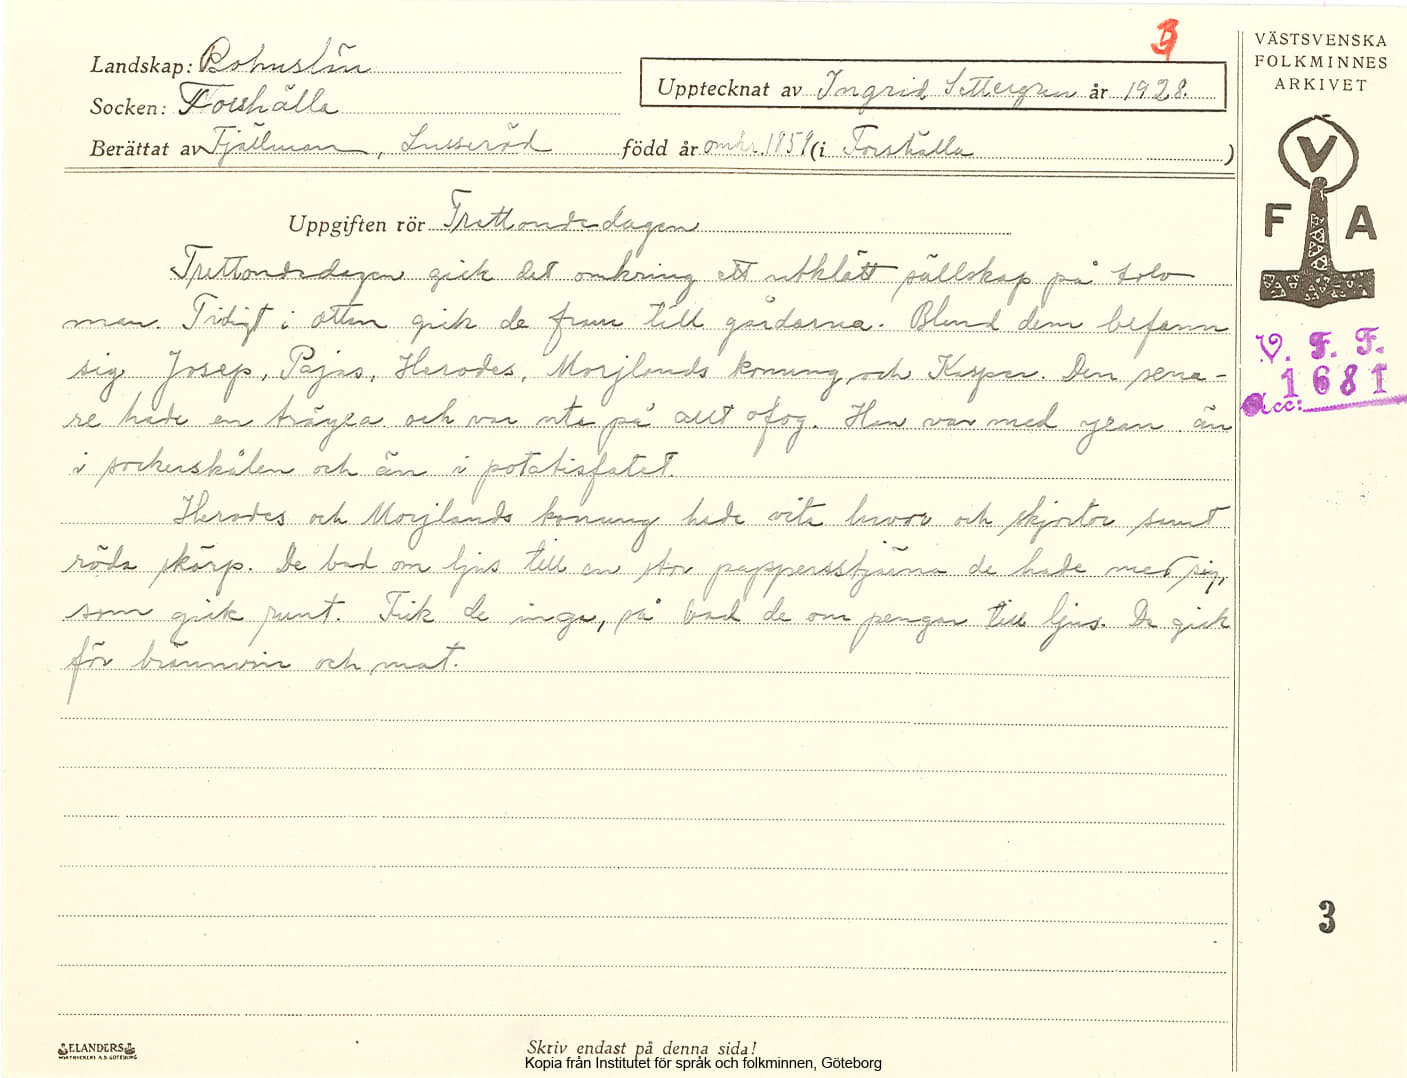 3
VÄSTSVENSKA
FOLKMINNES
ARKIVET
Landskap: Bohuslän
Upptecknat av Ingrid Settergren år 1928.
Socken: Forshälla
Berättat av Fjällman, Lusseröd född år omkr. 1859 (i Forshälla)
V
F A
Uppgiften rör Trettondedagen
Trettondedagen gick det omkring ett utklätt sällskap på tolv
man. Tidigt i ottan gick de fram till gårdarna. Bland dem befann
sig Josep, Pajas, Herodes, Morjlands konung och Kasper. Den sena-
re hade en tråyea och var ute på allt ofog. Han var med yean än
i sockerskålen och än i potatisfatet.
Herodes och Morjlands konung hade vita luvor och skjortor samt
röda skärp. De bad om ljus till en stor pappersstjärna de hade med sig,
som gick runt. Fick de inga, så bad de om pengar till ljus. De gick
för brännvin och mat.
V. F. F.
1681
Acc:
3
ELANDERS
Skriv endast på denna sida!
Kopia från Institutet för språk och folkminnen, Göteborg